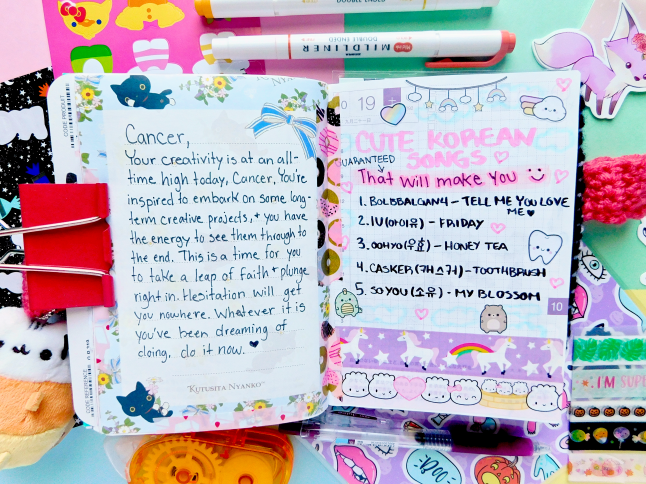 DOUBLE ENDED
DOUBLE ENDED
MILDLINER
CODE PRODUCT
Cancer,
Your creativity is at an all-
time high today, Cancer. You're
inspired to embark on some long-
term creative projects, + you have
the energy to see them through to
the end. This is a time for you
to take a leap of faith + plunge
right in. Hesitation will get
you nowhere. Whatever it is
you've been dreaming of
doing, do it now.
"KUTUSITA NYANKO"
CODE REFERENCE
19
CUTE KOREAN
SONGS
GUARANTEED
That will make you
1. BOLBBALGAN4 - TELL ME YOU LOVE
ME
2. IU (아이유) - FRIDAY
3. OOHYO (우효) - HONEY TEA
4. CASKER (캐스커) - TOOTHBRUSH
5. SOYOU (소유) - MY BLOSSOM
10
BOO
I'M SUP